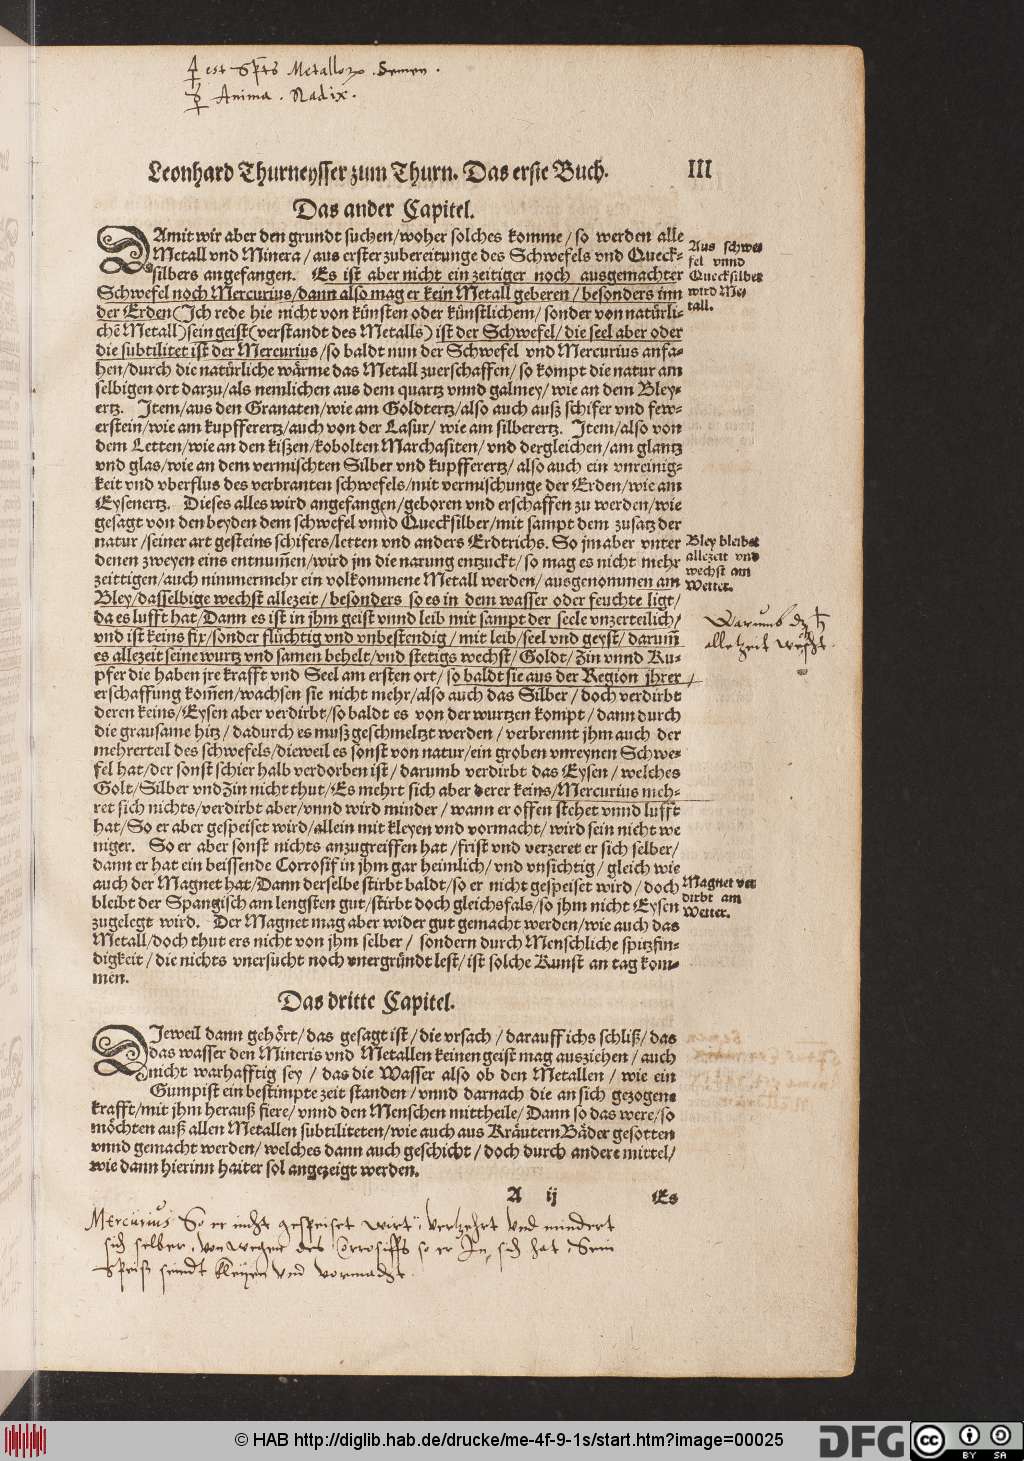 🜍 est Sp̄ts Metalloꝝ. Semen.
☿ Anima. Radix.
Leonhard Thurneysser zum Thurn. Das erste Buch.
III
Das ander Capitel.
DAmit wir aber den grundt suchen/woher solches komme/so werden alle
Metall vnd Minera/aus erster zubereitunge des Schwefels vnd Queck-
silbers angefangen. Es ist aber nicht ein zeitiger noch ausgemachter
Schwefel noch Mercurius/dann also mag er kein Metall geberen/besonders inn
der Erden (Ich rede hie nicht von künsten oder künstlichem/sonder von natürli-
chē Metall) sein geist (verstandt des Metalls) ist der Schwefel/die seel aber oder
die subtilitet ist der Mercurius/so baldt nun der Schwefel vnd Mercurius anfa-
hen/durch die natürliche wärme das Metall zuerschaffen/so kompt die natur am
selbigen ort darzu/als nemlichen aus dem quartz vnnd galmey/wie an dem Bley-
ertz. Item/aus den Granaten/wie am Goldtertz/also auch auß schifer vnd few-
erstein/wie am kupffererz/auch von der Lasur/wie am silberertz. Item/also von
dem Letten/wie an den kißen/kobolten Marchasiten/vnd dergleichen/am glantz
vnd glas/wie an dem vermischten Silber vnd kupfferertz/also auch ein vnreinig-
keit vnd vberflus des verbranten schwefels/mit vermischunge der Erden/wie am
Eysenertz. Dieses alles wird angefangen/geboren vnd erschaffen zu werden/wie
gesagt von den beyden dem schwefel vnnd Quecksilber/mit sampt dem zusatz der
natur/seiner art gesteins schifers/letten vnd anders Erdtrichs. So jm aber vnter
denen zweyen eins entnum̄en/wird jm die narung entzuckt/so mag es nicht mehr
zeittigen/auch nimmermehr ein volkommene Metall werden/ausgenommen am
Bley/dasselbige wechst allezeit/besonders so es in dem wasser oder feuchte ligt/
da es lufft hat/Dann es ist in jhm geist vnnd leib mit sampt der seele vnzerteilich/
vnd ist keins fix/sonder flüchtig vnd vnbestendig/mit leib/seel vnd geyst/darum̄
es allezeit seine wurtz vnd samen behelt/vnd stetigs wechst/Goldt/Zin vnnd Ku-
pfer die haben jre krafft vnd Seel am ersten ort/so baldt sie aus der Region jhrer
erschaffung kom̄en/wachsen sie nicht mehr/also auch das Silber/doch verdirbt
deren keins/Eysen aber verdirbt/so baldt es von der wurtzen kompt/dann durch
die grausame hitz/dadurch es muß geschmeltzt werden/verbrennt jhm auch der
mehrerteil des schwefels/dieweil es sonst von natur/ein groben vnreynen Schwe-
fel hat/der sonst schier halb verdorben ist/darumb verdirbt das Eysen/welches
Golt/Silber vnd Zin nicht thut/Es mehrt sich aber derer keins/Mercurius meh-
ret sich nichts/verdirbt aber/vnnd wird minder/wann er offen stehet vnnd lufft
hat/So er aber gespeiset wird/allein mit kleyen vnd vormacht/wird sein nicht we
niger. So er aber sonst nichts anzugreiffen hat/frist vnd verzeret er sich selber/
dann er hat ein beissende Corrosif in jhm gar heimlich/vnd vnsichtig/gleich wie
auch der Magnet hat/Dann derselbe stirbt baldt/so er nicht gespeiset wird/doch
bleibt der Spangisch am lengsten gut/stirbt doch gleichsfals/so jhm nicht Eysen
zugelegt wird. Der Magnet mag aber wider gut gemacht werden/wie auch das
Metall/doch thut ers nicht von jhm selber/sondern durch Menschliche spitzfin-
digkeit/die nichts vnersucht noch vnergründt lest/ist solche Kunst an tag kom-
men.
Aus schwe-
fel vnnd
Quecksilber
wird Me-
tall.
Bley bleibet
allezeit vnd
wechst am
Wetter.
Warumb dz ♄
alle Zeit wechst.
Magnet ver
dirbt am
Wetter.
Das dritte Capitel.
DJeweil dann gehört/das gesagt ist/die vrsach/darauff ichs schliß/das
das wasser den Mineris vnd Metallen keinen geist mag ausziehen/auch
nicht warhafftig sey/das die Wasser also ob den Metallen/wie ein
Gumpist ein bestimpte zeit standen/vnnd darnach die an sich gezogene
krafft/mit jhm herauß fiere/vnnd den Menschen mittheile/Dann so das were/so
möchten auß allen Metallen subtiliteten/wie auch aus Kräutern Bäder gesotten
vnnd gemacht werden/welches dann auch geschicht/doch durch andere mittel/
wie dann hierinn haiter sol angezeigt werden.
A ij
Es
Mercurius So er nicht gespeiset wirt, verzehrt vnd mindert
sich selber, von wegene des Corrosiffs so er In sich hat, Sein
Speiß seindt kleyen vnd vormacht.
© HAB http://diglib.hab.de/drucke/me-4f-9-1s/start.htm?image=00025
DFG
cc
BY SA